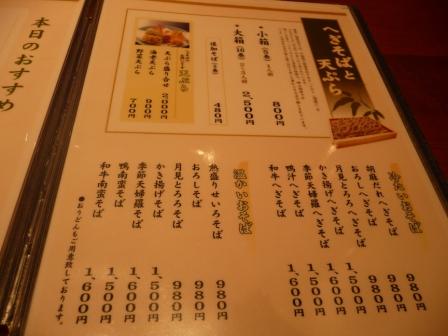 へぎそばと
天ぷら
小箱（5束）1人前 800円
大箱（16束）2〜3人前 2,500円
追加そば 480円
天ぷら盛り合せ 2000円
海老天ぷら 900円
野菜天ぷら 700円
冷たいおそば
胡麻だれへぎそば 980円
おろしへぎそば 980円
月見とろろへぎそば 980円
かき揚げへぎそば
季節天婦羅へぎそば 1,500円
鴨汁へぎそば 1,500円
和牛へぎそば 1,600円
温かいおそば
熱盛りせいろそば 980円
おろしそば 980円
月見とろろそば 980円
かき揚げそば
季節天婦羅そば 1,500円
鴨南蛮そば 1,500円
和牛南蛮そば 1,600円
●おうどんもご用意致しております。
本日のおすすめ